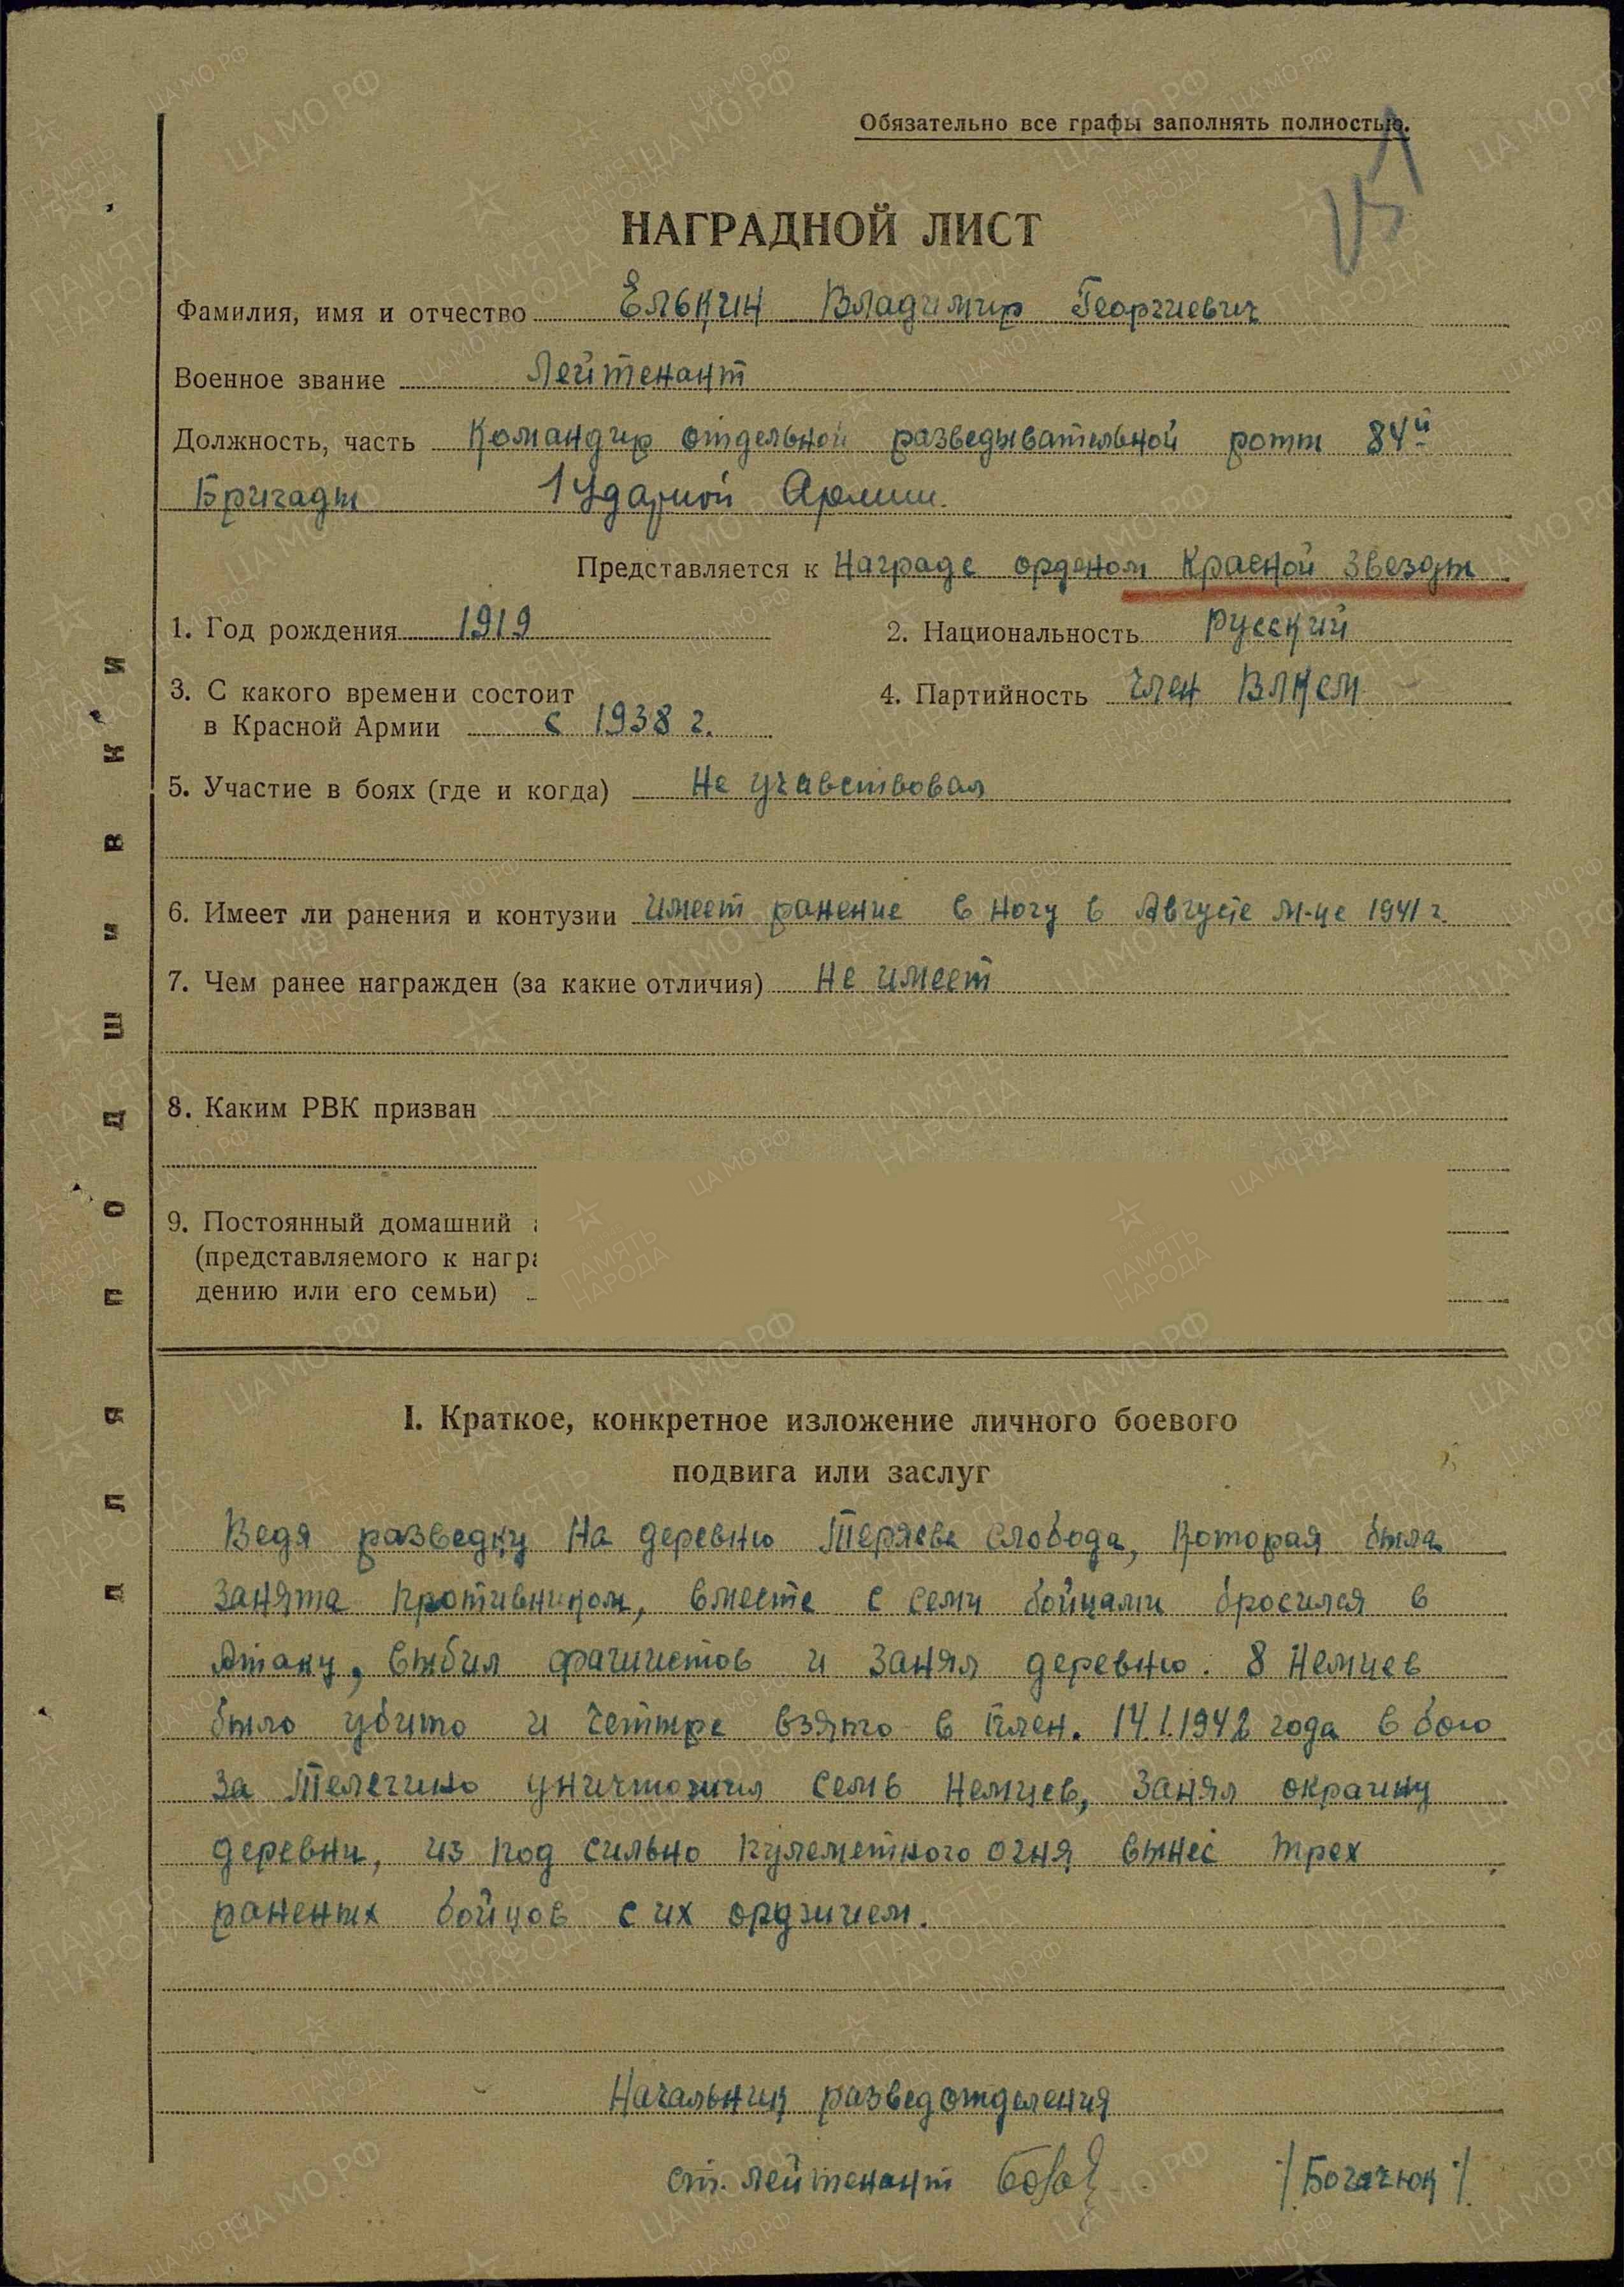 Обязательно все графы заполнять полностью.
НАГРАДНОЙ ЛИСТ
Фамилия, имя и отчество Елькин Владимир Георгиевич
Военное звание Лейтенант
Должность, часть Командир отдельной разведывательной роты 84й
Бригады 1 Ударной Армии.
Представляется к Награде орденом Красной Звезды
1. Год рождения 1919
2. Национальность Русский
3. С какого времени состоит
в Красной Армии с 1938 г.
4. Партийность член ВЛКСМ
5. Участие в боях (где и когда) Не учавствовал
6. Имеет ли ранения и контузии Имеет ранение в ногу в Августе м-це 1941 г.
7. Чем ранее награжден (за какие отличия) Не имеет
8. Каким РВК призван
9. Постоянный домашний
(представляемого к награ
дению или его семьи)
I. Краткое, конкретное изложение личного боевого
подвига или заслуг
Ведя разведку на деревню Теряева Слобода, которая была
занята противником, вместе с семи бойцами бросился в
Атаку, выбил фашистов и занял деревню. 8 немцев
было убито и четыре взято в плен. 14.1.1942 года в бою
за Телегино уничтожил семь немцев, занял окраину
деревни, из под сильно пулеметного огня вынес трех
раненых бойцов с их оружием.
Начальник разведотделения
ст. лейтенант /Богачюк/
ДЛЯ ПОДШИВКИ
ПАМЯТЬ НАРОДА
ЦА МО РФ